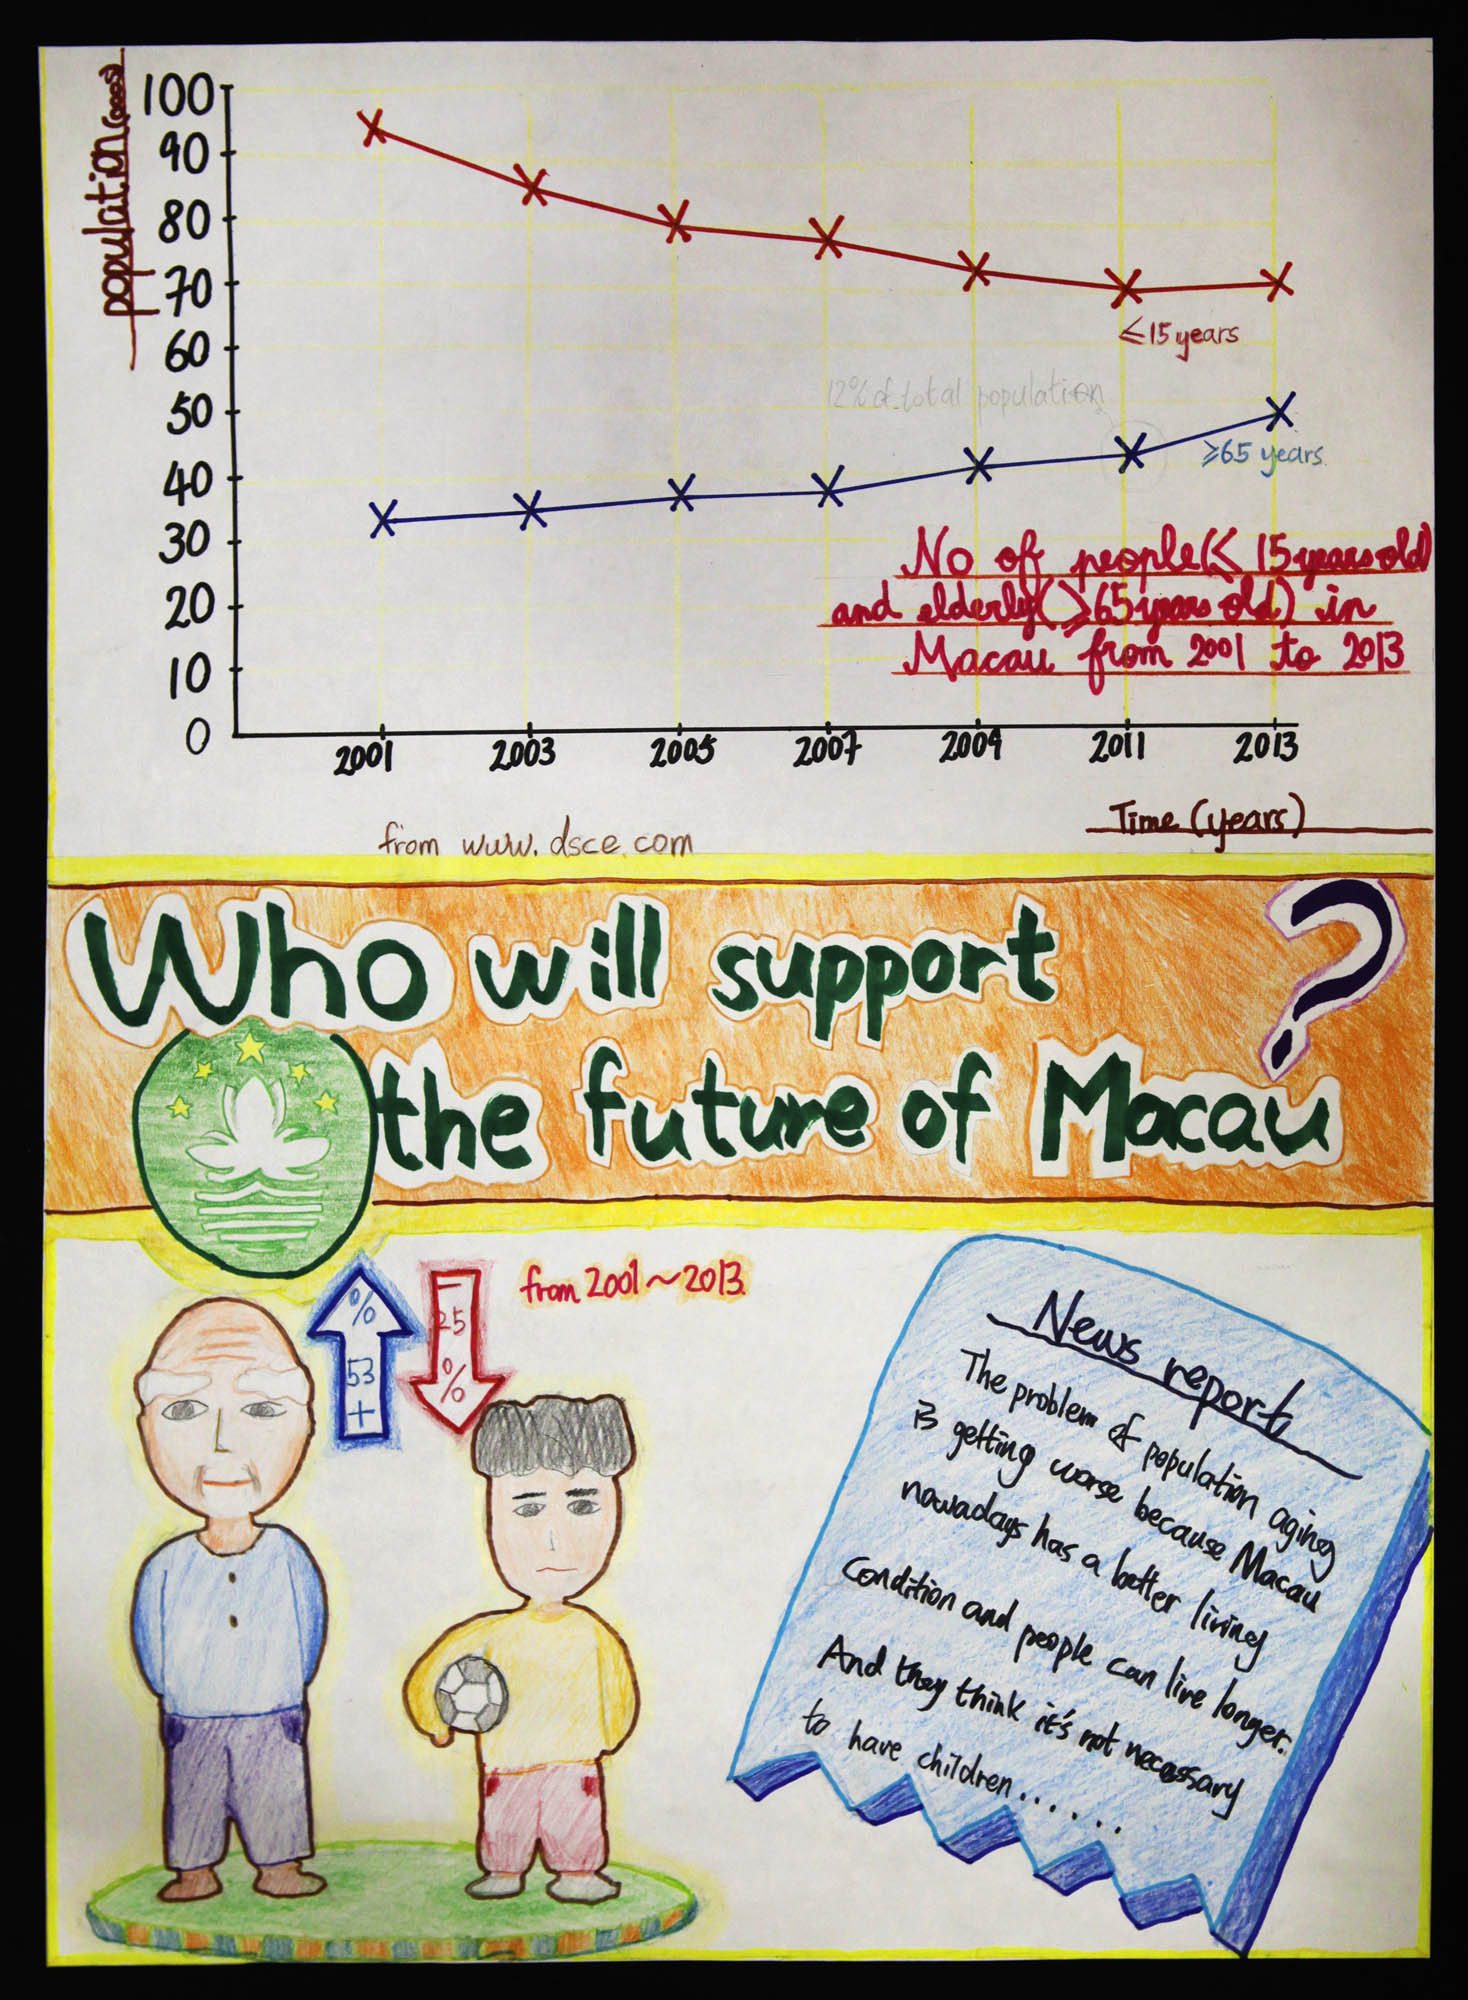 population (000s)
100
90
80
70
60
50
40
30
20
10
0
≤15 years
12% of total population
≥65 years
No of people(≤ 15 years old)
and elderly(≥65 years old) in
Macau from 2001 to 2013
2001 2003 2005 2007 2009 2011 2013
Time (years)
from www.dsce.com
Who will support
the future of Macau ?
% 53 +
- 25 %
from 2001~2013
News report
The problem of population aging
is getting worse because Macau
nowadays has a better living
condition and people can live longer.
And they think it's not necessary
to have children......